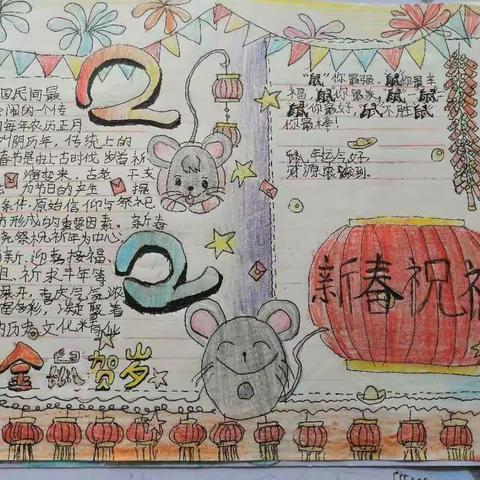 2
国民间最
个传
每年农历正月
阴历年，传统上的
春节是由上古时代岁首祈
演变来，古老 干支
为节日的产生 提
条件，原始信仰与祭祀
形成的重要因素。新春
祝祈年为中心
新、迎喜接福、
祈求丰年等
展开，喜庆气氛浓
彩，凝聚着
历史文化精华
2
金鼠贺岁
"鼠"你最强，鼠你最幸
福，鼠你最美，鼠
鼠你最好，鼠不胜鼠
你最棒！
鼠年运气好
财源滚滚到
新春祝福